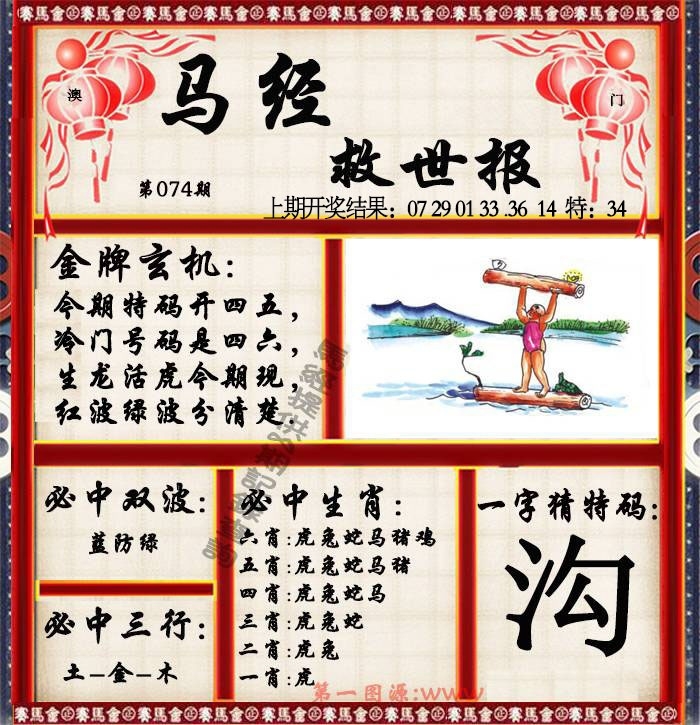 賽馬會金賽馬會金賽馬會金賽馬會金賽馬會金賽馬會
澳
门
马经
救世报
第074期
上期开奖结果：07 29 01 33 .36 14 特：34
金牌玄机：
今期特码开四五，
冷门号码是四六，
生龙活虎今期现，
红波绿波分清楚.
必中双波：
蓝防绿
必中三行：
土-金-木
必中生肖：
六肖:虎兔蛇马猪鸡
五肖:虎兔蛇马猪
四肖:虎兔蛇马
三肖:虎兔蛇
二肖:虎兔
一肖:虎
一字猜特码：
沟
第一图源:www